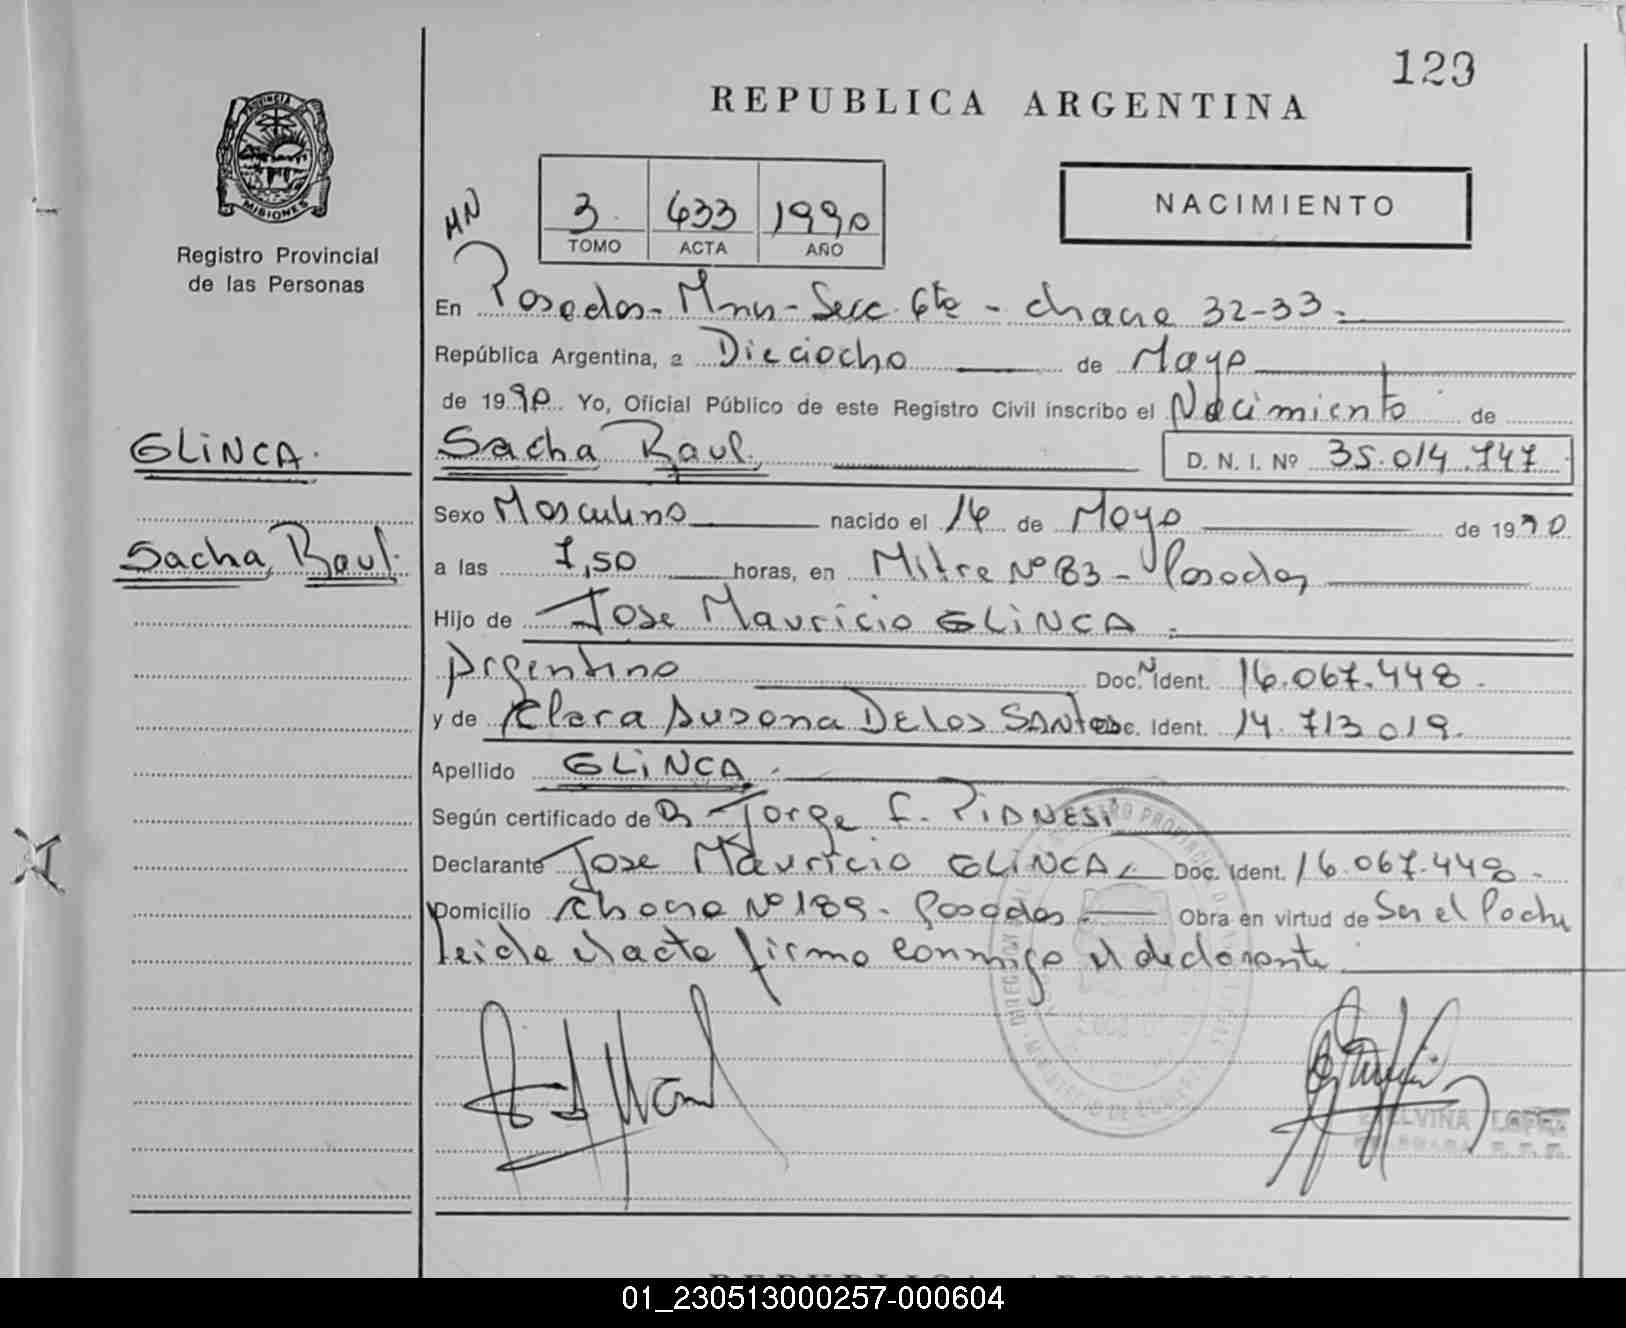 129
REPUBLICA ARGENTINA
PROVINCIA
MISIONES
Registro Provincial
de las Personas
NACIMIENTO
MN
3 433 1990
TOMO ACTA AÑO
En Posadas - Mnes - Secc. 6ta - chacra 32-33.
República Argentina, a Dieciocho de Mayo
de 1990 Yo, Oficial Público de este Registro Civil inscribo el Nacimiento de
GLINCA.
Sacha Raul. D. N. I. Nº 35.014.747
Sexo Masculino nacido el 14 de Mayo de 1990
Sacha, Raul.
a las 7,50 horas, en Mitre Nº 83 - Posadas
Hijo de Jose Mauricio GLINCA.
Argentino Doc. N Ident. 16.067.448.
y de Clara Susana DE los SANTOS Doc. Ident. 14.713.019.
Apellido GLINCA.
Según certificado de Dr Jorge F.
Declarante Jose Mauricio GLINCA Doc. Ident. 16.067.448.
Domicilio Chacra Nº 189 - Posadas. Obra en virtud de Ser el Padre
leida el acta firma conmigo el declarante
ELVINA LOPEZ
01_230513000257-000604